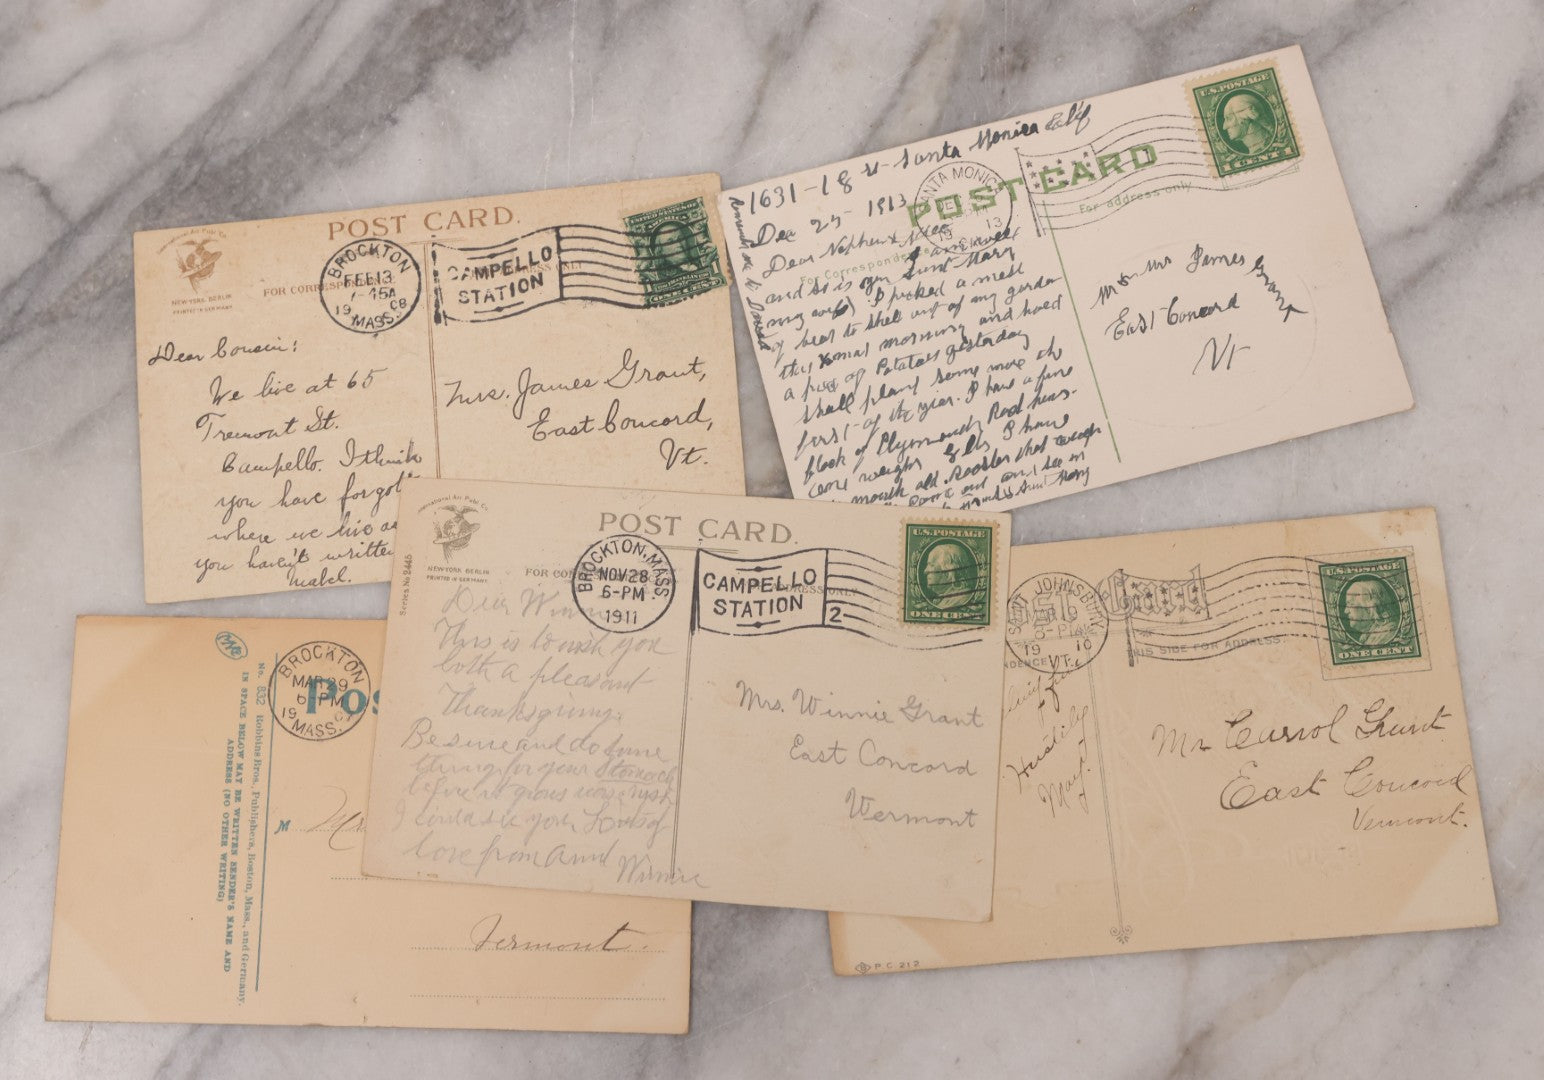 POST CARD.
International Art Publ. Co.
NEW-YORK BERLIN
PRINTED IN GERMANY
FOR CORRESPONDENCE
BROCKTON
FEB 13
19 08
MASS.
CAMPELLO
STATION
UNITED STATES OF
AMERICA
ONE CENT
Dear Cousin:
We live at 65
Tremont St.
Campello. I think
you have forgot
where we live as
you haven't written
Mabel.
Mrs. James Grant,
East Concord,
Vt.
POST CARD
For Correspondence
For address only
SANTA MONICA
U.S. POSTAGE
1 CENT 1
1631-18 St Santa Monica Calif
Dec 25 1913
Dear Nephew & Niece
I am well
and so is your Aunt Mary
I picked a mess
of beans to shell out of my garden
this Xmas morning and hoed
a piece of Potatoes yesterday
shall plant some more the
first of the year. I have a fine
flock of Plymouth Rock hens.
one weighs 9 lbs I have
month old Rooster that weighs
come out and see us
Aunt Mary
Mr & Mrs James Grant
East Concord
Vt
POST CARD.
International Art Publ. Co.
NEW-YORK BERLIN
PRINTED IN GERMANY
Series No 2445
BROCKTON, MASS.
NOV 28
6-PM
1911
CAMPELLO
STATION
2
U.S. POSTAGE
ONE CENT
Dear Winnie
This is to wish you
both a pleasant
Thanksgiving.
Be sure and do some
thing for your stomach
before it grows worse wish
I could see you. Loads of
love from Aunt Winnie
Mrs. Winnie Grant
East Concord
Vermont
ST JOHNSBURY
8-PM
19 10
VT.
Card
THIS SIDE FOR ADDRESS
U.S. POSTAGE
ONE CENT
Hastily
May.
Mr Carrol Grant.
East Concord
Vermont.
P C 212
BROCKTON
MAR 29
6-PM
19
MASS.
Pos
No. 832 Robbins Bros., Publishers, Boston, Mass., and Germany.
IN SPACE BELOW MAY BE WRITTEN SENDER'S NAME AND
ADDRESS (NO OTHER WRITING)
M Mr
Vermont.